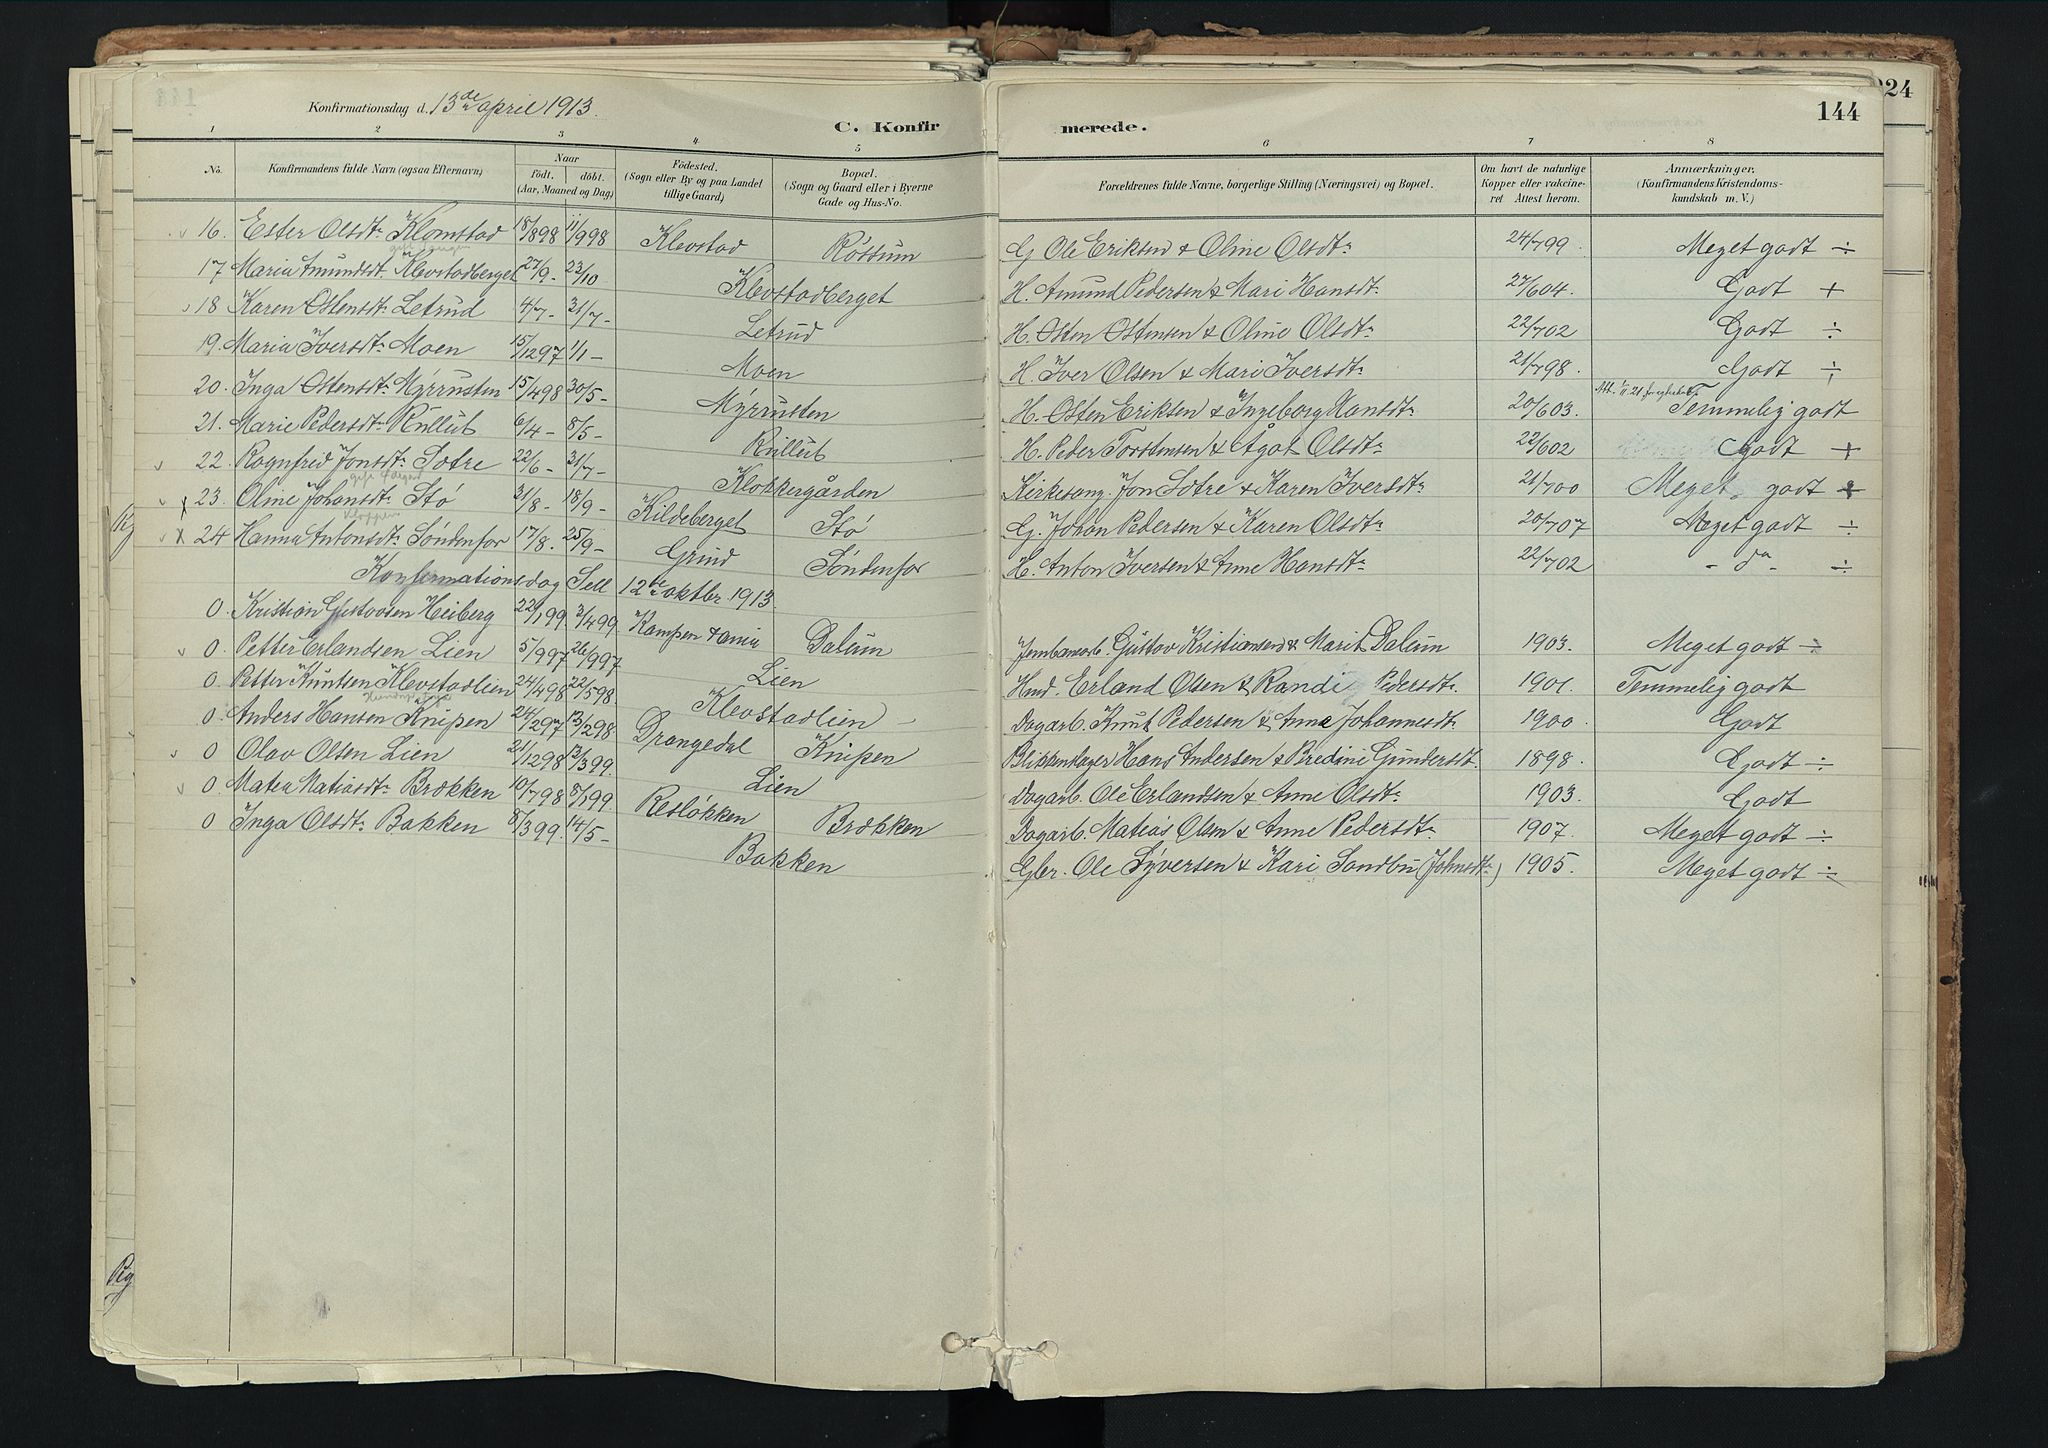 144
24
Konfirmationsdag d. 13de april 1913.
C. Konfirmerede.
1 2 3 4 5 6 7 8
No. Konfirmandens fulde Navn (ogsaa Efternavn) Naar Födt. döbt. (Aar, Maaned og Dag) Födested. (Sogn eller By og paa Landet tillige Gaard) Bopæl. (Sogn og Gaard eller i Byerne Gade og Hus-No. Forældrenes fulde Navne, borgerlige Stilling (Næringsvei) og Bopæl. Om havt de naturlige Kopper eller vakcineret Attest herom. Anmærkninger. (Konfirmandens Kristendomskundskab m. V.)
16. Ester Olsdtr Klomstad 18/898 11/998 Klevstad Røssum G Ole Eriksen & Oline Olsdtr 24/799. Meget godt ÷
17 Maria Amundsdt. Klevstadberget 27/9 - 23/10 Klevstadberget H. Amund Pedersen & Mari Hansdt. 27/604. Godt +
18 Karen Ostensdt. Letrud 4/7 - 31/7 - Letrud H. Osten Ostensen & Oline Olsdtr 22/702 Godt ÷
19. Maria Iversdtr Moen 15/1297 1/1 - Moen H. Iver Olsen & Mari Iversdtr 21/798. Godt ÷
20. Inga Ostensdtr Myrrusten 15/498 30/5 - Myrrusten H. Osten Eriksen & Ingeborg Hansdtr 20/603. Temmelig godt
21. Marie Pedersdtr Rullut 6/4 - 8/5 - Rullut H. Peder Torstensen & Ågot Olsdtr 22/602 Godt +
22. Ragnfred Jonsdtr Sotre 22/6 - 31/7 - Klokkergården Kirkesang. Jon Sotre & Karen Iversdtr 21/700 Meget godt +
23. Oline Johansdtr Stö 31/8 - 18/9 - Kildeberget Stö G. Johan Pedersen & Karen Olsdtr 20/707 Meget godt ÷
x 24 Hanna Antonsdtr Söndenfor 17/8. 25/9 - Grind Söndenfor H. Anton Iversen & Anne Hansdtr 22/702 - do - ÷
Konfirmationsdag Sell 12te oktbr. 1913.
0. Kristian Gustavsen Heiberg 22/199 3/499 Kampen Dalum Jernbanearb. Gustav Kristiansen & Marit Dalum 1903. Meget godt ÷
0. Petter Erlandsen Lien 5/997 26/997 Lien Hmd. Erland Olsen & Randi Pedersdtr. 1901. Temmelig godt
0. Petter Knutsen Klevstadlien 24/498 22/598. Klevstadlien - Dagarb. Knut Pedersen & Anne Johannesdtr 1900. Godt
0. Anders Hansen Knipen 24/297 13/298. Drangedal Knipen Blikkenslager Hans Andersen & Bredine Gundersdt. 1898. Godt ÷
0 Olav Olsen Lien 21/1298 13/399. Lien Dagarb. Ole Erlandsen & Anne Olsdtr 1903. Godt
0. Matea Matiasdtr Brækken 10/798 8/199 Resløkken Brækken Dagarb. Matias Olsen & Anne Pedersdtr 1907. Meget godt ÷
0 Inga Olsdtr Bakken 8/399. 14/5 - Bakken Gbr. Ole Syversen & Kari Sandbu (Johnsdtr) 1905. Meget godt ÷